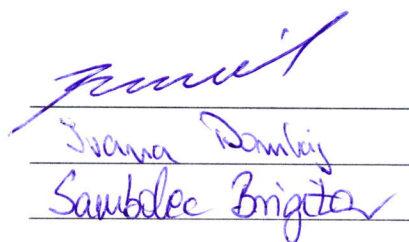 Ivana Dombaj
Sambolec Brigita